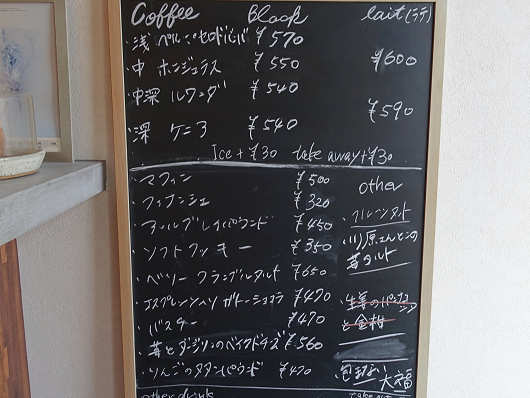 Coffee Black lait(ラテ)
・浅 ペルー ¥570
・中 ホンジュラス ¥550 ¥600
・中深 ルワンダ ¥540
¥590
・深 ケニア ¥540
Ice+¥30 take away+¥30
・マフィン ¥500 other
・フィナンシェ ¥320
・アールグレイパウンド ¥450
・ソフトクッキー ¥350 苺タルト
・ベリークランブルタルト ¥650
ガトーショコラ ¥470 ・生姜のパンナコッタ
・バスチー ¥470 と金柑
・苺とダージリンのベイクドチーズ ¥560
・りんごのタタンパウンド ¥470 大福
other drink